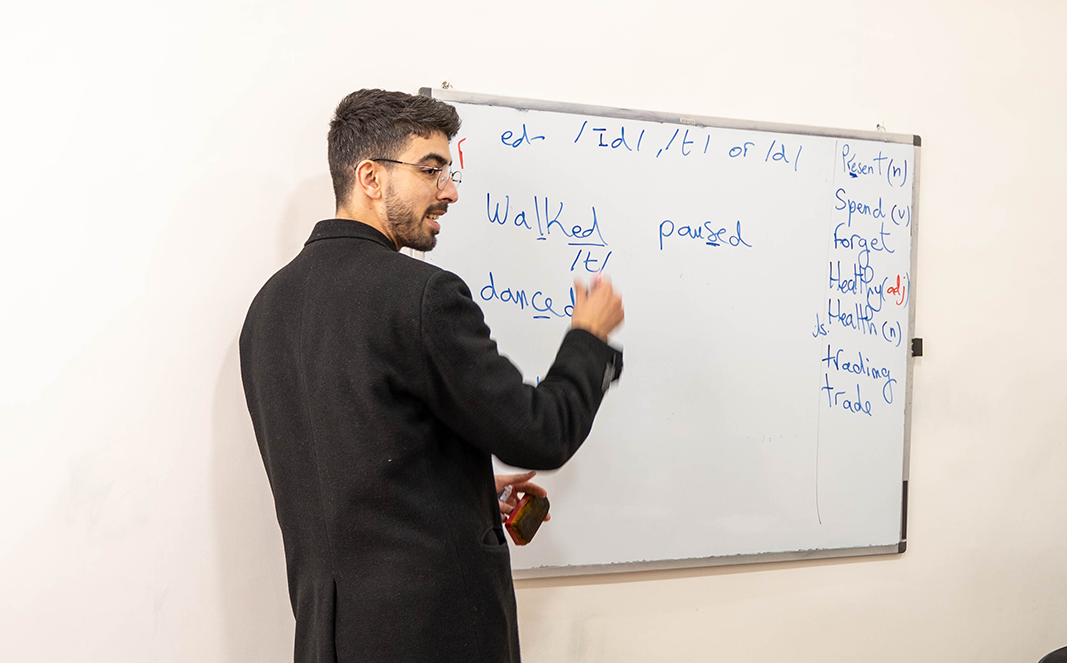 ed- /Id/, /t/ or /d/
Walked paused
/t/
danced
Present (n)
Spend (v)
forget
Healthy (adj)
Health (n)
trading
trade